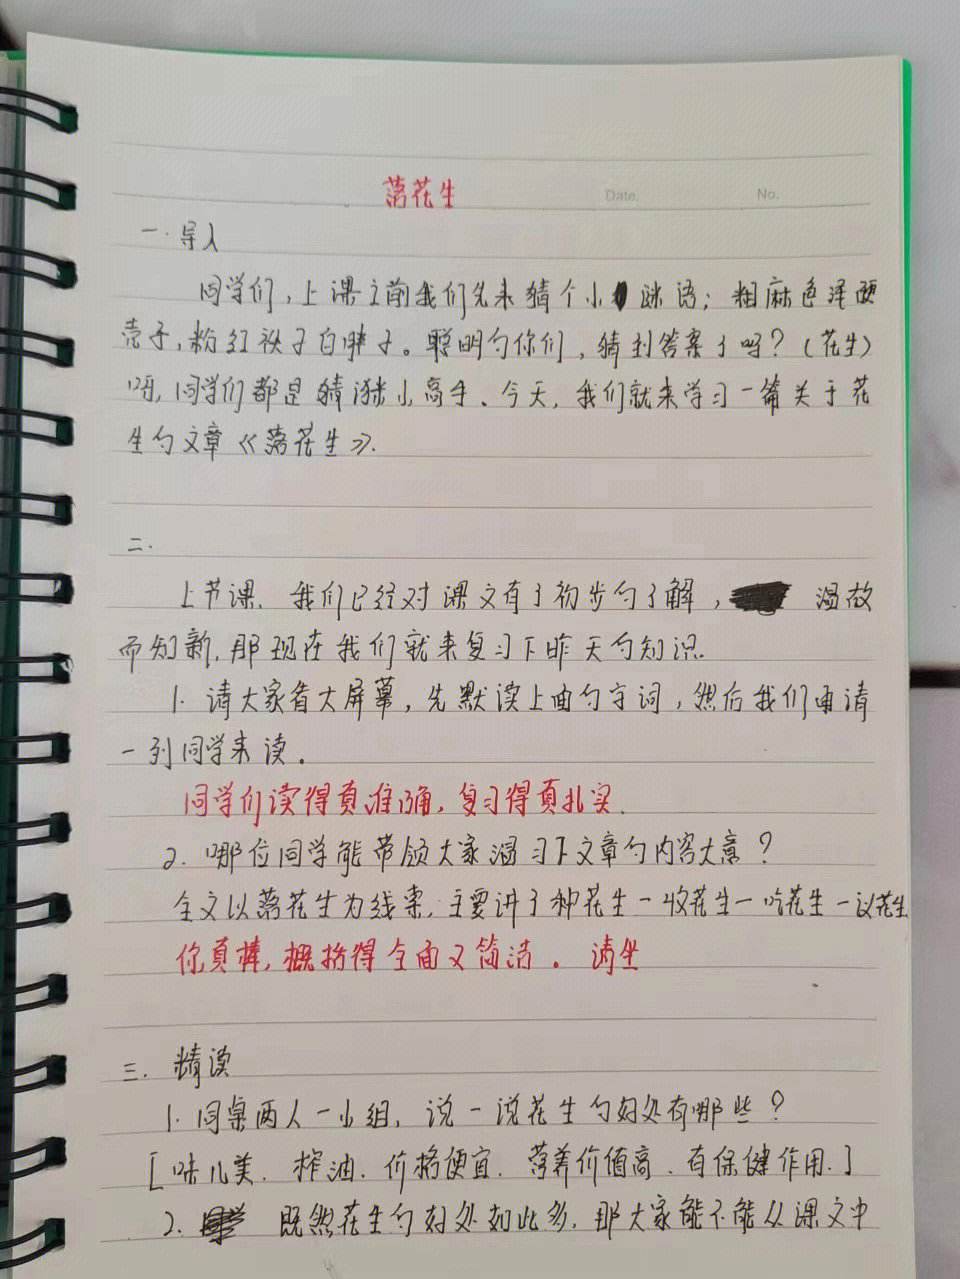 落花生
Date.
No.
一.导入
同学们,上课之前我们先来猜个小谜语:粗麻色泽硬
壳子,粉红袄子白胖子。聪明的你们,猜到答案了吗?(花生)
呀,同学们都是猜谜小高手、今天,我们就来学习一篇关于花
生的文章《落花生》.
二.
上节课.我们已经对课文有了初步的了解,温故
而知新,那现在我们就来复习下昨天的知识.
1.请大家看大屏幕,先默读上面的字词,然后我们再请
一列同学来读。
同学们读得真准确,复习得真扎实.
2.哪位同学能带领大家温习下文章的内容大意?
全文以落花生为线索,主要讲了种花生一收花生一吃花生一议花生
你真棒,概括得全面又简洁。请坐
三.精读
1.同桌两人一小组,说一说花生的好处有哪些?
[味儿美.榨油.价格便宜.营养价值高.有保健作用.]
2.既然花生的好处如此多,那大家能不能从课文中